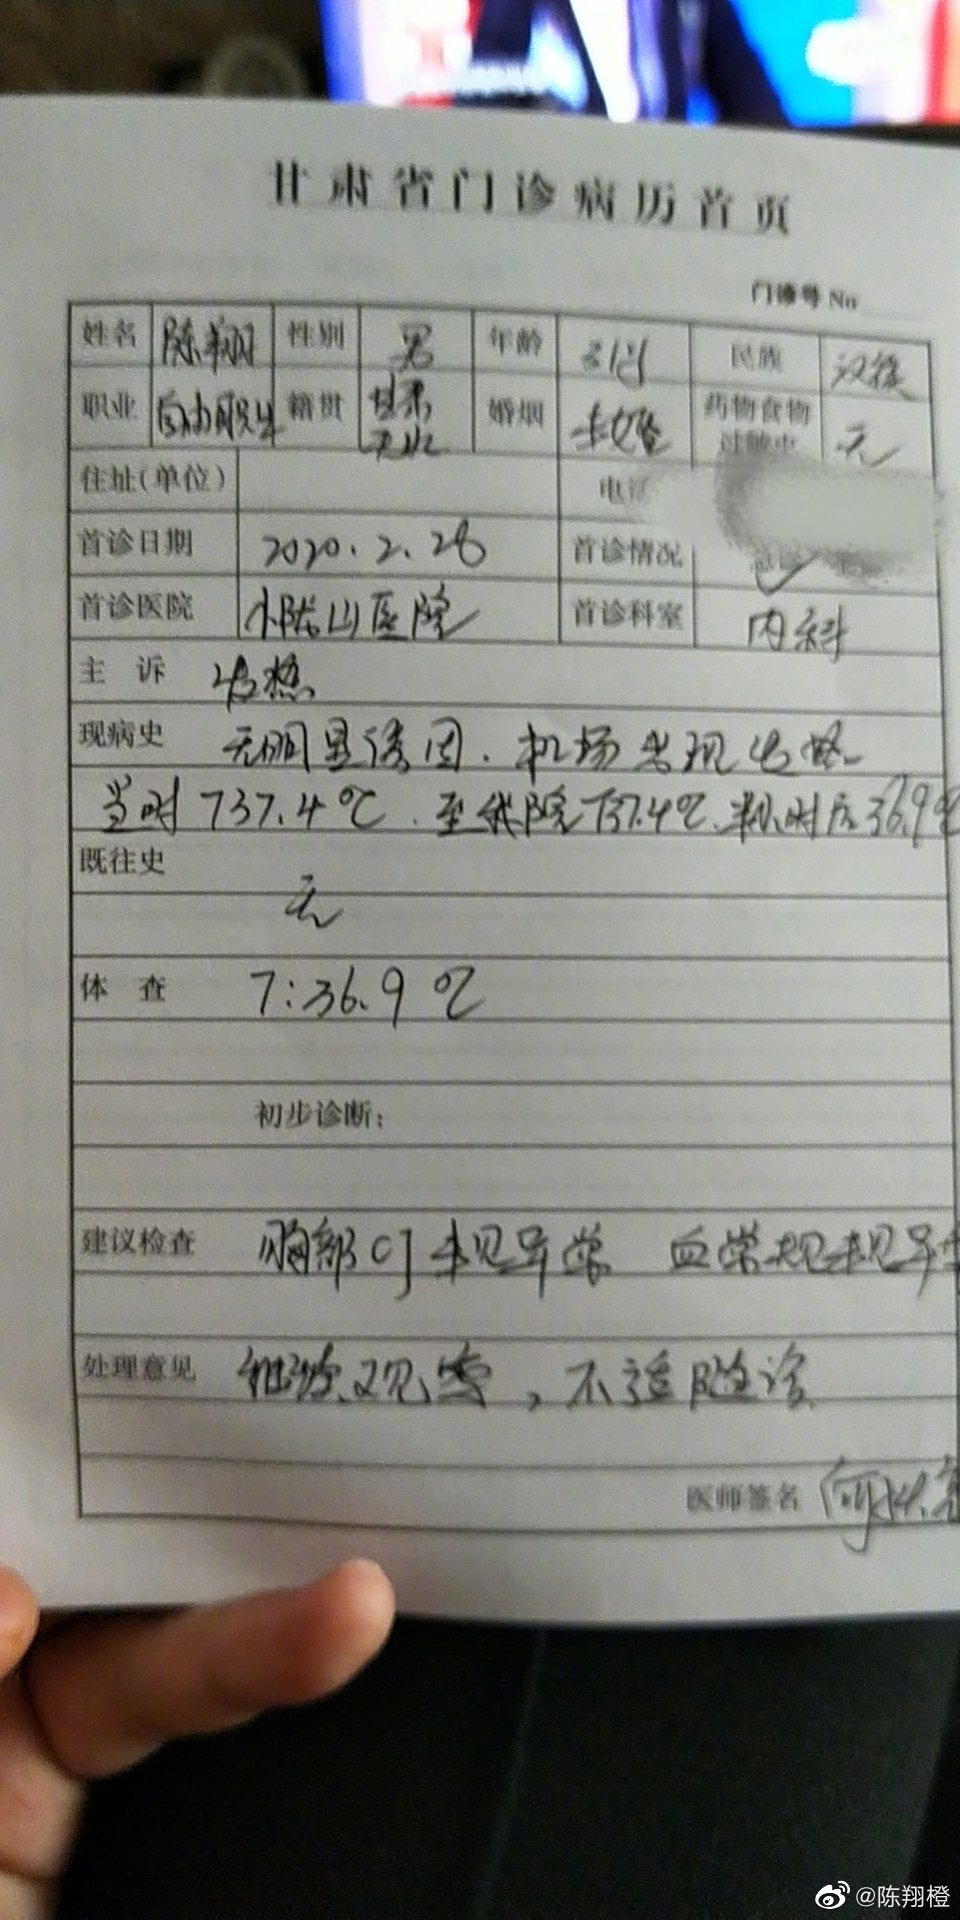 甘肃省门诊病历首页
门诊号 No
姓名 陈翔 性别 男 年龄 31岁 民族 汉族
职业 自由职业 籍贯 甘肃天水 婚姻 未婚 药物食物过敏史 无
住址(单位) 电话
首诊日期 2020.2.28 首诊情况 急诊
首诊医院 小陇山医院 首诊科室 内科
主 诉 发热
现病史 无明显诱因.机场发现发热
当时T37.4℃.至我院T37.4℃.半小时后36.9℃
既往史
无
体 查 T:36.9℃
初步诊断:
建议检查 胸部CT未见异常 血常规未见异常
处理意见 继续观察,不适随诊
医师签名
@陈翔橙